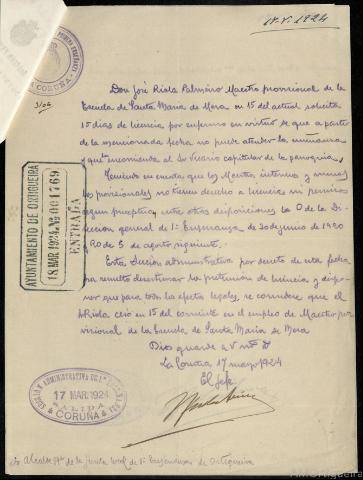 17-V-1924
CORUÑA
3/06
Don José Riola Palmeiro Maestro provisional de la
Escuela de Santa Maria de Mera en 15 del actual solicita
15 dias de licencia por enfermo en virtud de que a partir
de la mencionada fecha no puede atender la enseñanza
y que encomienda al Sr Vicario capitular de la parroquia.
Teniendo en cuenta que los Maestros interinos y
los provisionales no tienen derecho a licencias ni permisos
segun preceptua entre otras disposiciones la O de la Di
reccion general de 1ª Enseñanza de 30 de junio de 1920
y R O de 5 de agosto siguiente.
Esta Seccion administrativa por decreto de esta fecha
ha resuelto desestimar la pretension de licencia y dispo
ner que para todos los efectos legales, se considere que el
Sr Riola cesó en 15 del corriente en el empleo de Maestro pro
visional de la Escuela de Santa Maria de Mera
Dios guarde a V mᵒˢ aˢ
La Coruña 17 mayo 1924
El Jefe
AYUNTAMIENTO DE ORTIGUEIRA
18.MAR.1924 № 001769
ENTRADA
17 MAR. 1924
SALIDA
CORUÑA
Sr Alcalde Pte de la Junta local de 1ª Enseñanza de Ortigueira
A.M.Ortigueira